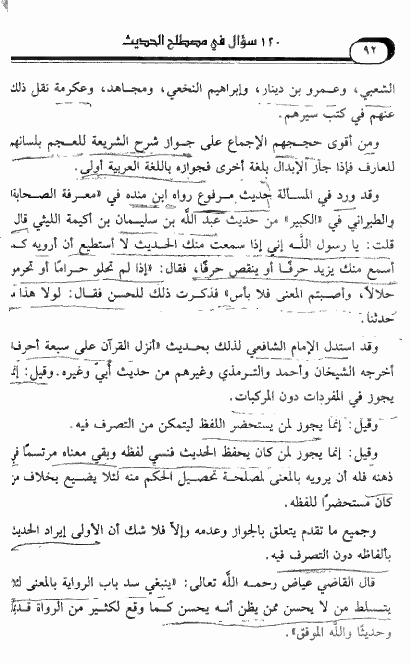 ١٢٠ سؤال في مصطلح الحديث
٩٢
الشعبي، وعمرو بن دينار، وإبراهيم النخعي، ومجاهد، وعكرمة نقل ذلك
عنهم في كتب سيرهم.
ومن أقوى حججهم الإجماع على جواز شرح الشريعة للعجم بلسانهم
للعارف فإذا جاز الإبدال بلغة أخرى فجوازه باللغة العربية أولى.
وقد ورد في المسألة حديث مرفوع رواه ابن منده في «معرفة الصحابة»
والطبراني في «الكبير» من حديث عبد الله بن سليمان بن أكيمة الليثي قال
قلت: يا رسول الله إني إذا سمعت منك الحديث لا أستطيع أن أرويه كما
أسمع منك يزيد حرفًا أو ينقص حرفًا، فقال: «إذا لم تحلو حرامًا أو تحرموا
حلالًا، وأصبتم المعنى فلا بأس» فذكرت ذلك للحسن فقال: لولا هذا ما
حدثنا.
وقد استدل الإمام الشافعي لذلك بحديث «أنزل القرآن على سبعة أحرف»
أخرجه الشيخان وأحمد والترمذي وغيرهم من حديث أبيّ وغيره. وقيل: إنما
يجوز في المفردات دون المركبات.
وقيل: إنما يجوز لمن يستحضر اللفظ ليتمكن من التصرف فيه.
وقيل: إنما يجوز لمن كان يحفظ الحديث فنسي لفظه وبقي معناه مرتسمًا في
ذهنه فله أن يرويه بالمعنى لمصلحة تحصيل الحكم منه لئلا يضيع بخلاف من
كان مستحضرًا للفظه.
وجميع ما تقدم يتعلق بالجواز وعدمه وإلا فلا شك أن الأولى إيراد الحديث
بألفاظه دون التصرف فيه.
قال القاضي عياض رحمه الله تعالى: «ينبغي سد باب الرواية بالمعنى لئلا
يتسلط من لا يحسن ممن يظن أنه يحسن كما وقع لكثير من الرواة قديمًا
وحديثًا والله الموفق».